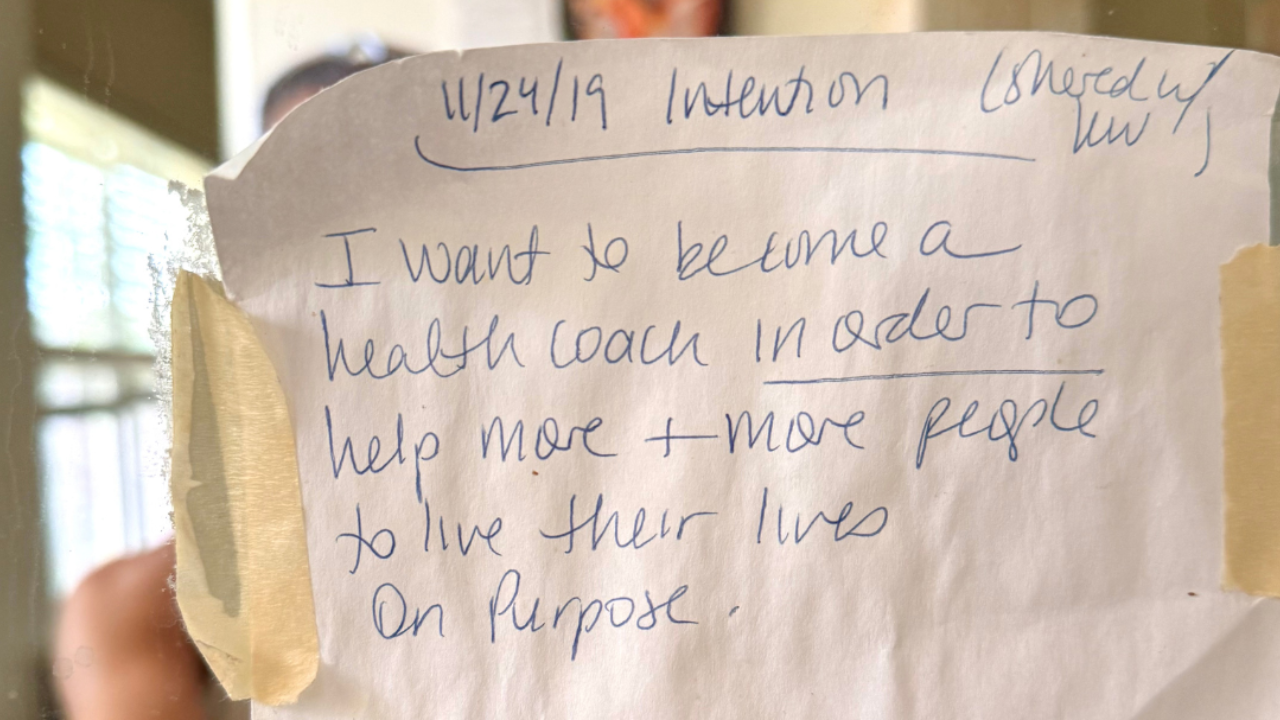 11/24/19 Intention (shared w/
I want to become a
health coach in order to
help more + more people
to live their lives
On Purpose.